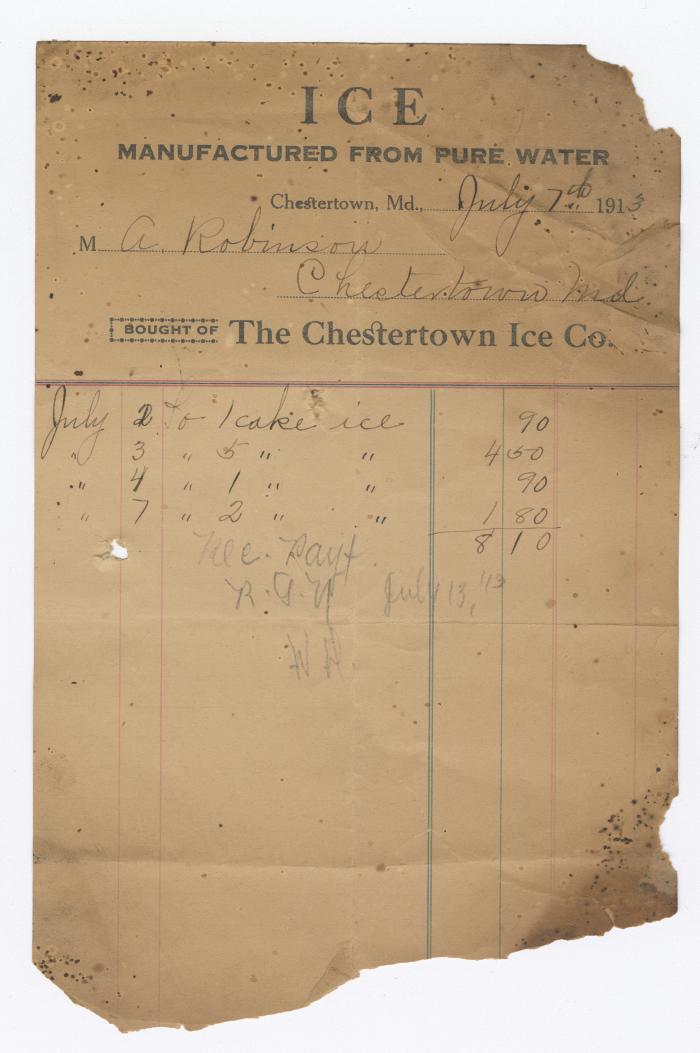 ICE
MANUFACTURED FROM PURE WATER
Chestertown, Md., July 7th 1913
M A. Robinson
Chestertown Md
BOUGHT OF The Chestertown Ice Co.
July 2 To 1 cake ice 90
" 3 " 5 " " 4 50
" 4 " 1 " " 90
" 7 " 2 " " 1 80
8 10
Rec. Payt
July 13, '13